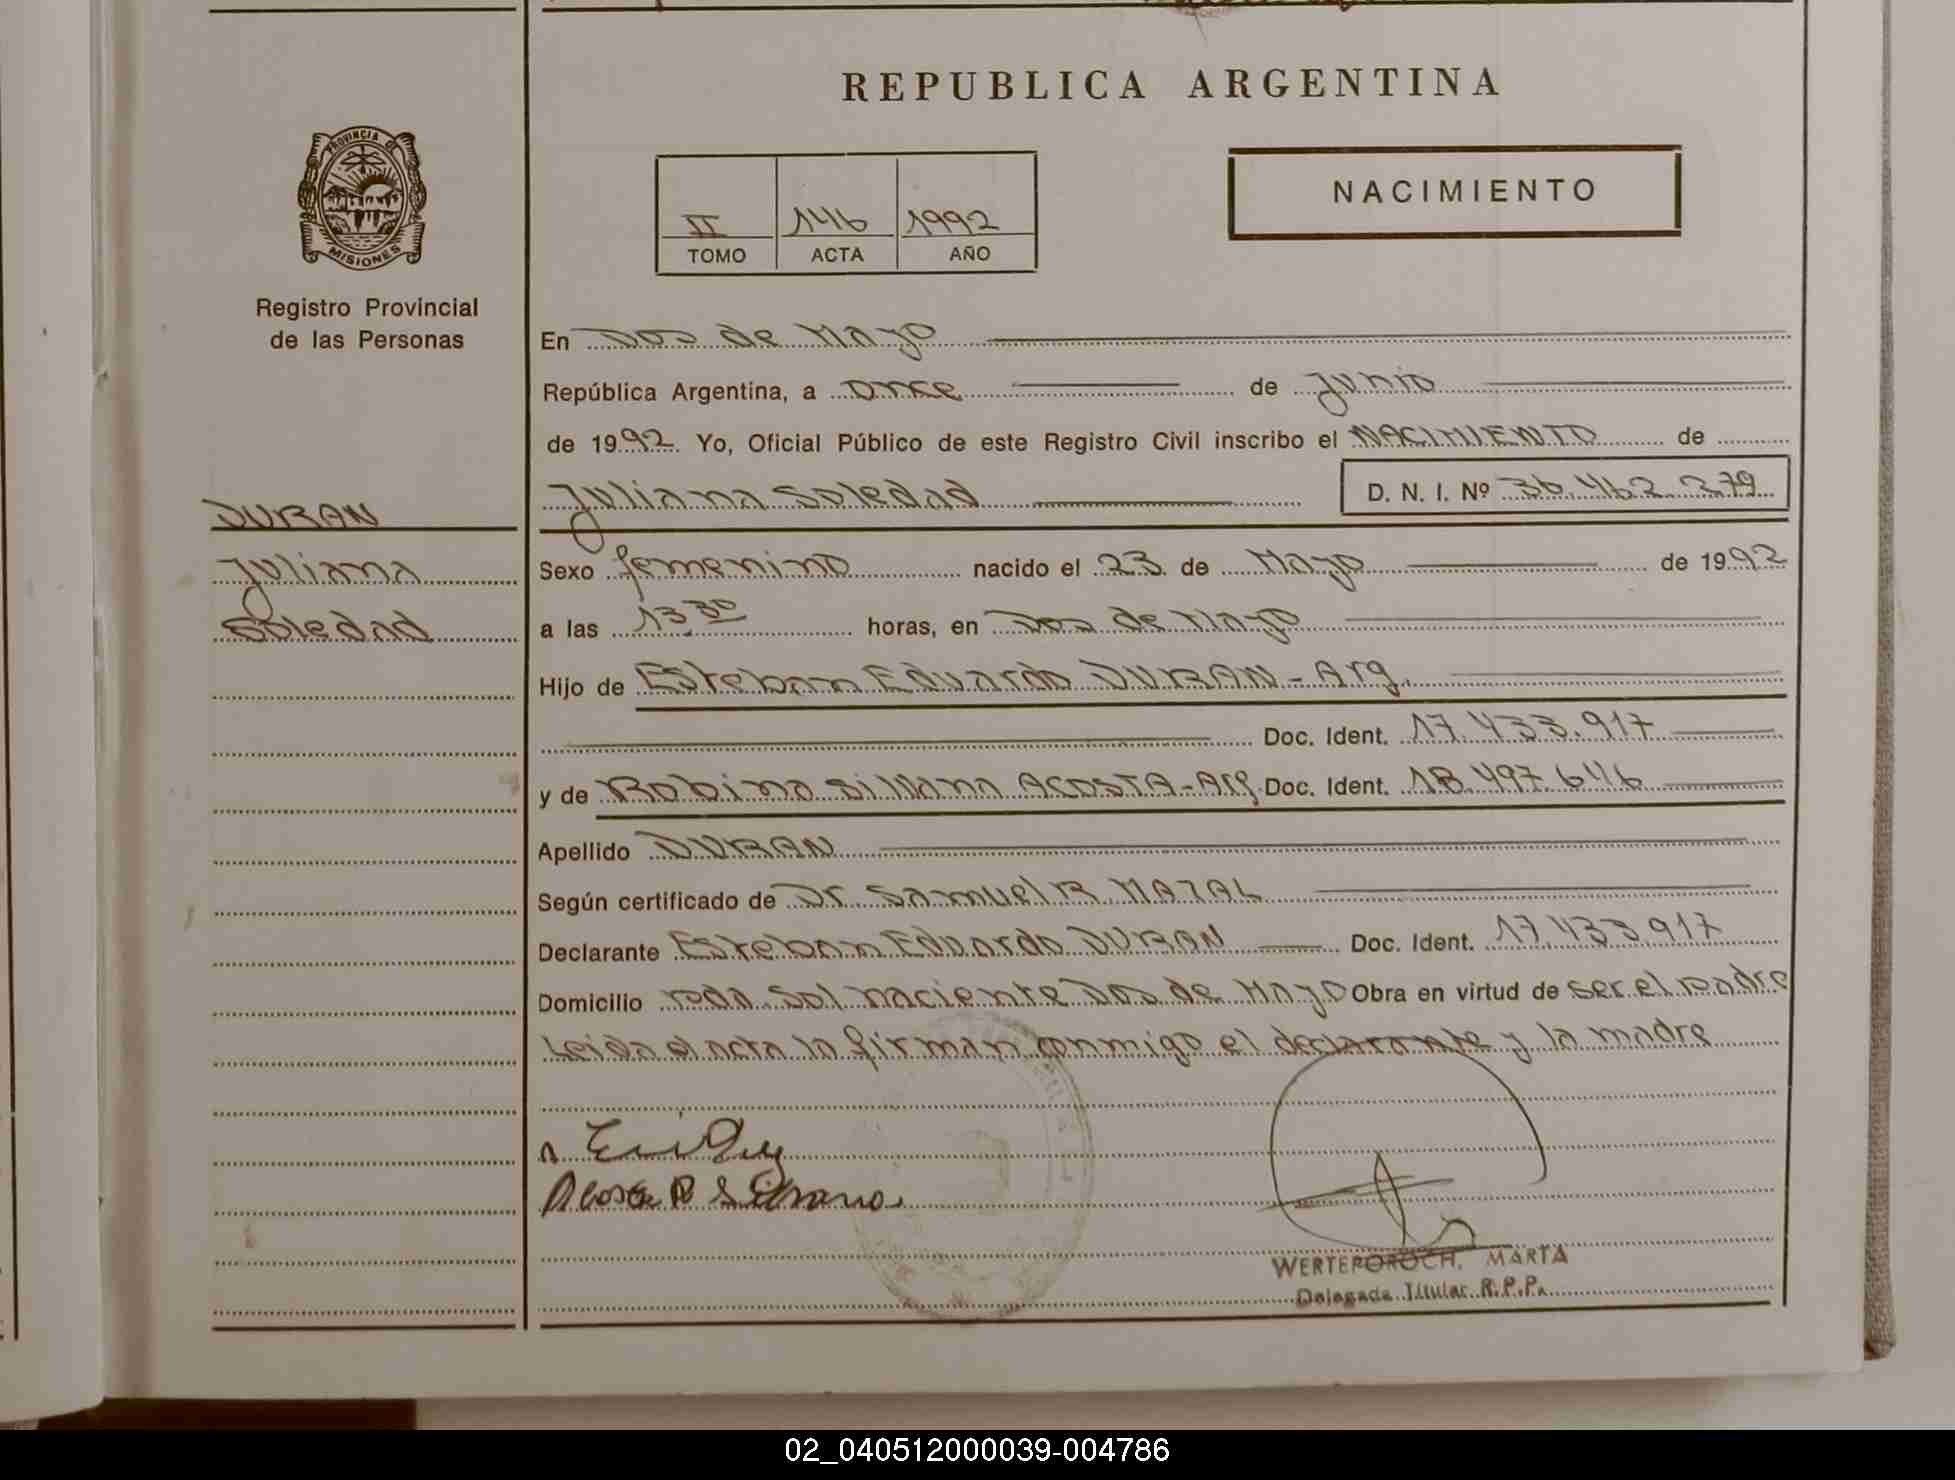 REPUBLICA ARGENTINA
PROVINCIA DE
MISIONES
Registro Provincial
de las Personas
II 146 1992
TOMO ACTA AÑO
NACIMIENTO
En Dos de Mayo
República Argentina, a once de Junio
de 1992 Yo, Oficial Público de este Registro Civil inscribo el NACIMIENTO de
Juliana Soledad D. N. I. Nº 36.462.279
DURAN
Juliana
Soledad
Sexo femenino nacido el 23 de Mayo de 1992
a las 13 30 horas, en Dos de Mayo
Hijo de Esteban Eduardo DURAN - Arg.
Doc. Ident. 17.433.917
y de Robina Silvana ACOSTA - Arg. Doc. Ident. 18.497.646
Apellido DURAN
Según certificado de Dr. Samuel R. MAZAL
Declarante Esteban Eduardo DURAN Doc. Ident. 17.433.917
Domicilio Sol naciente Dos de Mayo Obra en virtud de ser el padre
Leida el acta la firman conmigo el declarante y la madre
Acosta R Silvana
WERTEPOROCH, MARTA
Delegada Titular R.P.P.
02_040512000039-004786